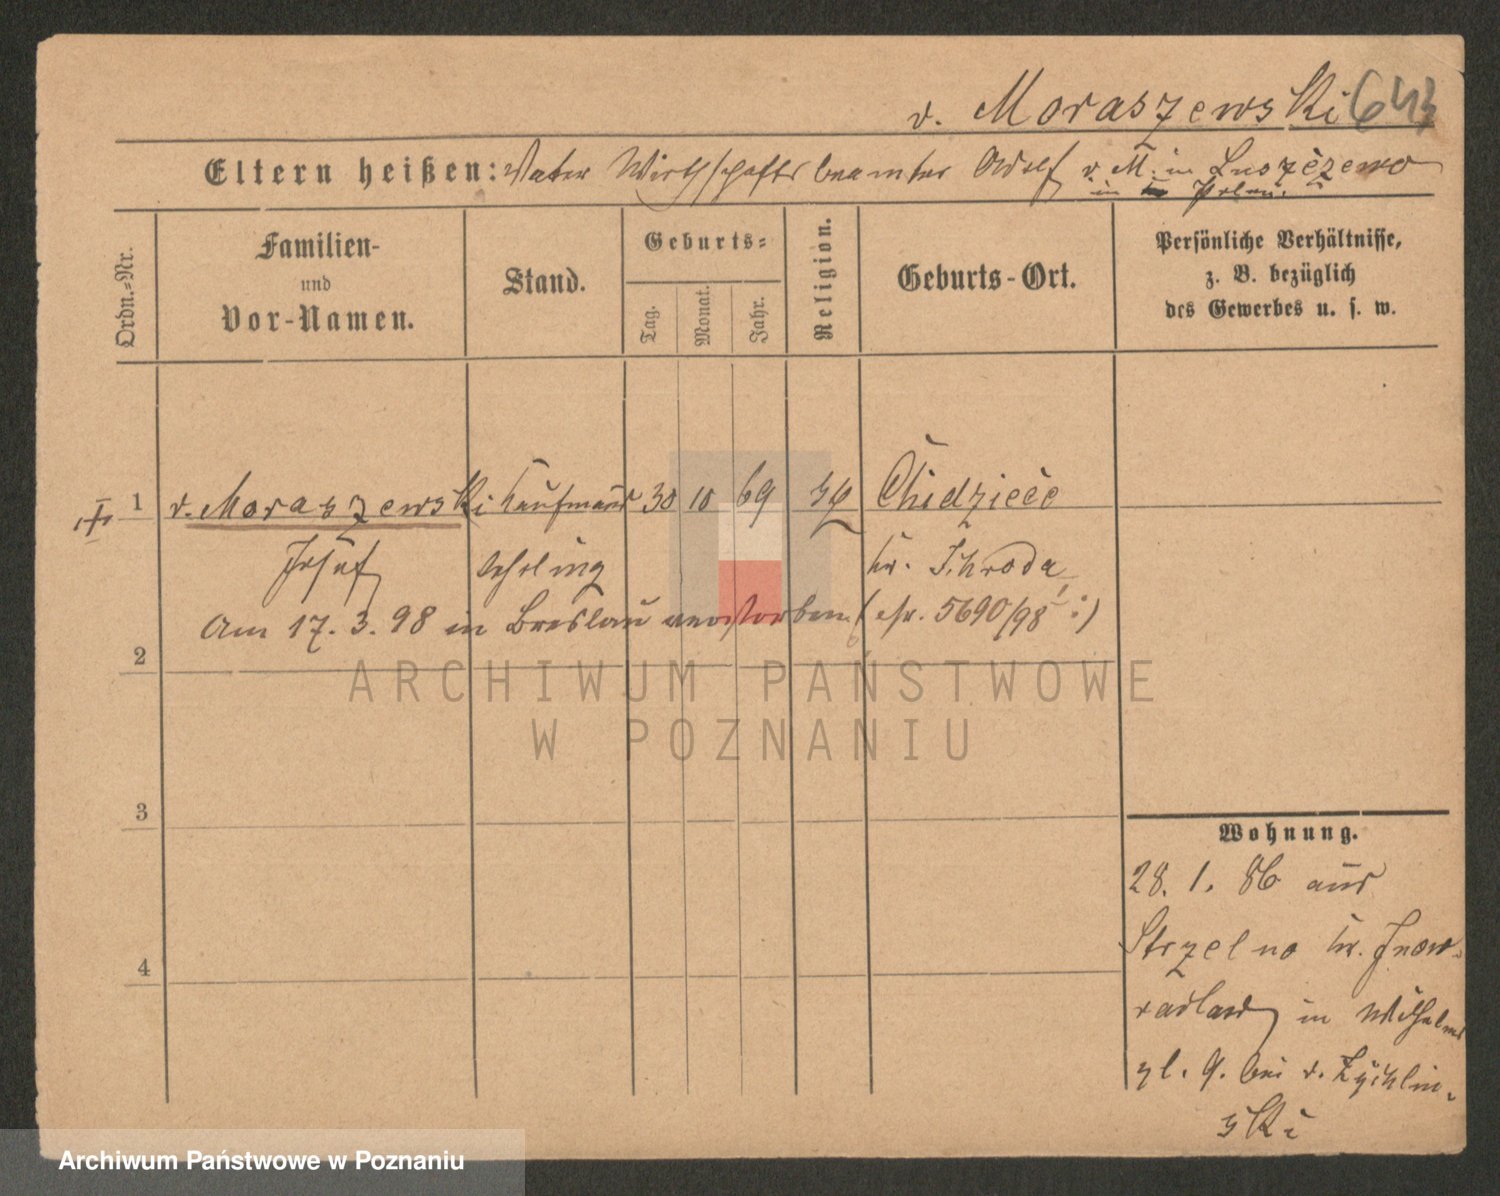 v. Moraszewski 643
Eltern heißen: Vater Wirthschaftsbeamter Adolf v. M. in
in Polen.
Ordn.-Nr.
Familien-
und
Vor-Namen.
Stand.
Geburts-
Tag.
Monat.
Jahr.
Religion.
Geburts-Ort.
Persönliche Verhältnisse,
z. B. bezüglich
des Gewerbes u. s. w.
1 v. Moraszewski Kaufmanns 30 10 69
Josef lehrling Kr. Schroda
Am 17. 3. 98 in Breslau verstorben (cfr. 5690/98 :)
2
3
4
Wohnung.
28. 1. 86 aus
Strzelno Kr. Inow-
razlaw in Wilhelms
pl. 9. bei v. Zychlin-
ski
ARCHIWUM PAŃSTWOWE
W POZNANIU
Archiwum Państwowe w Poznaniu